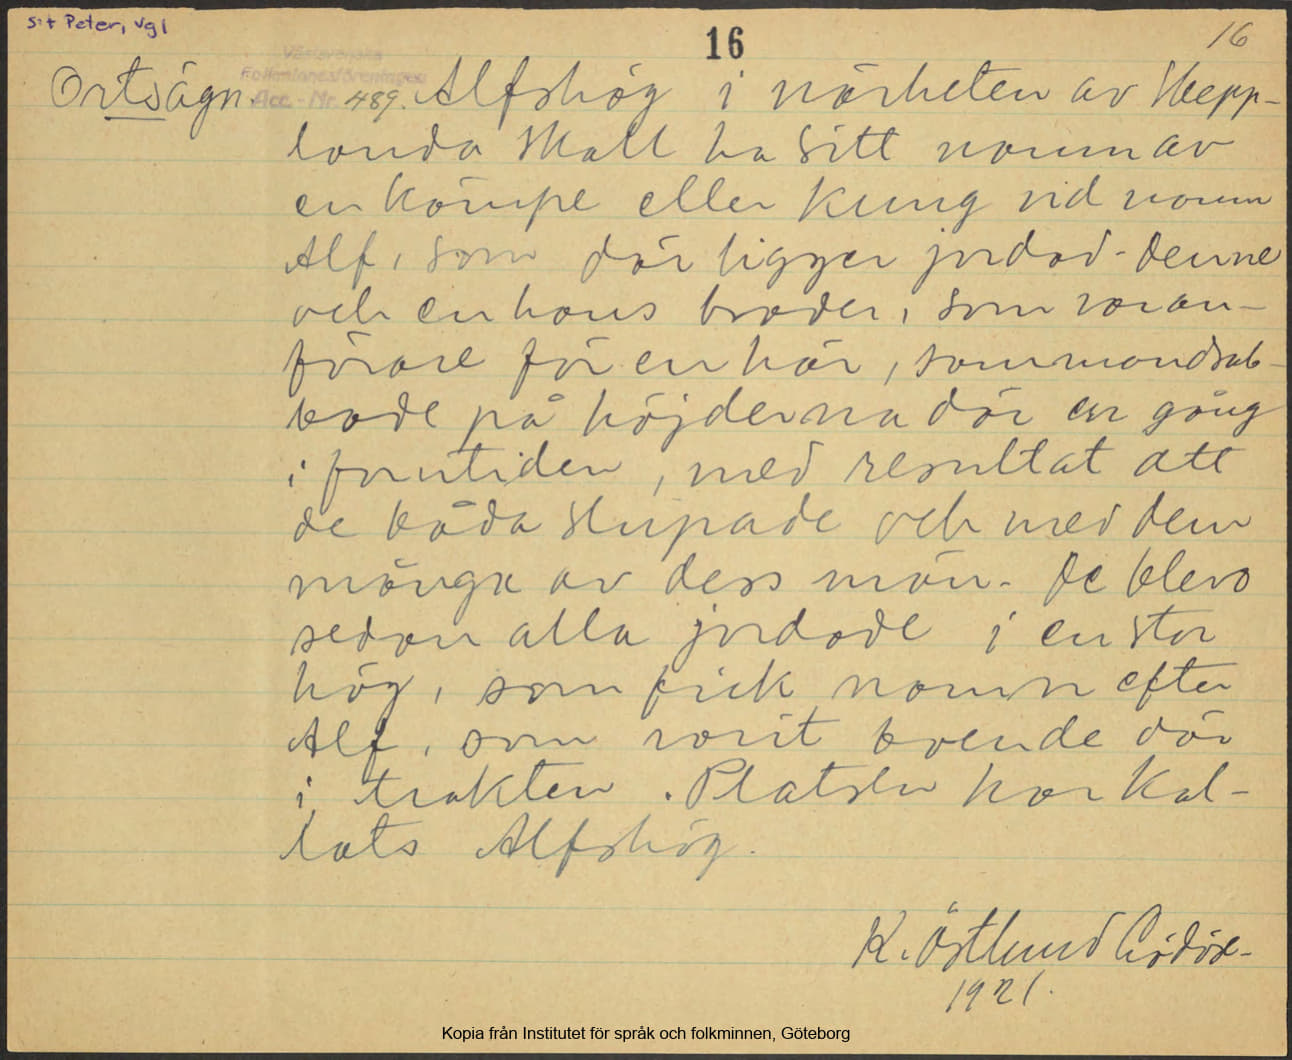 S:t Peter, Vgl
16
16
Västsvenska
Folkminnesföreningen
Acc.-Nr. 489.
Ortsägn. Alfshög i närheten av Skepp-
landa skall ha sitt namn av
en kämpe eller kung vid namn
Alf, som där ligger jordad. Denne
och en hans broder, som var an-
förare för en här, sammandrab-
bade på höjderna där en gång
i forntiden, med resultat att
de båda stupade och med dem
många av dess män. De blevo
sedan alla jordade i en stor
hög, som fick namn efter
Alf, som varit boende där
i trakten. Platsen har kal-
lats Alfshög.
K. Östlund Lödöse
1921.
Kopia från Institutet för språk och folkminnen, Göteborg